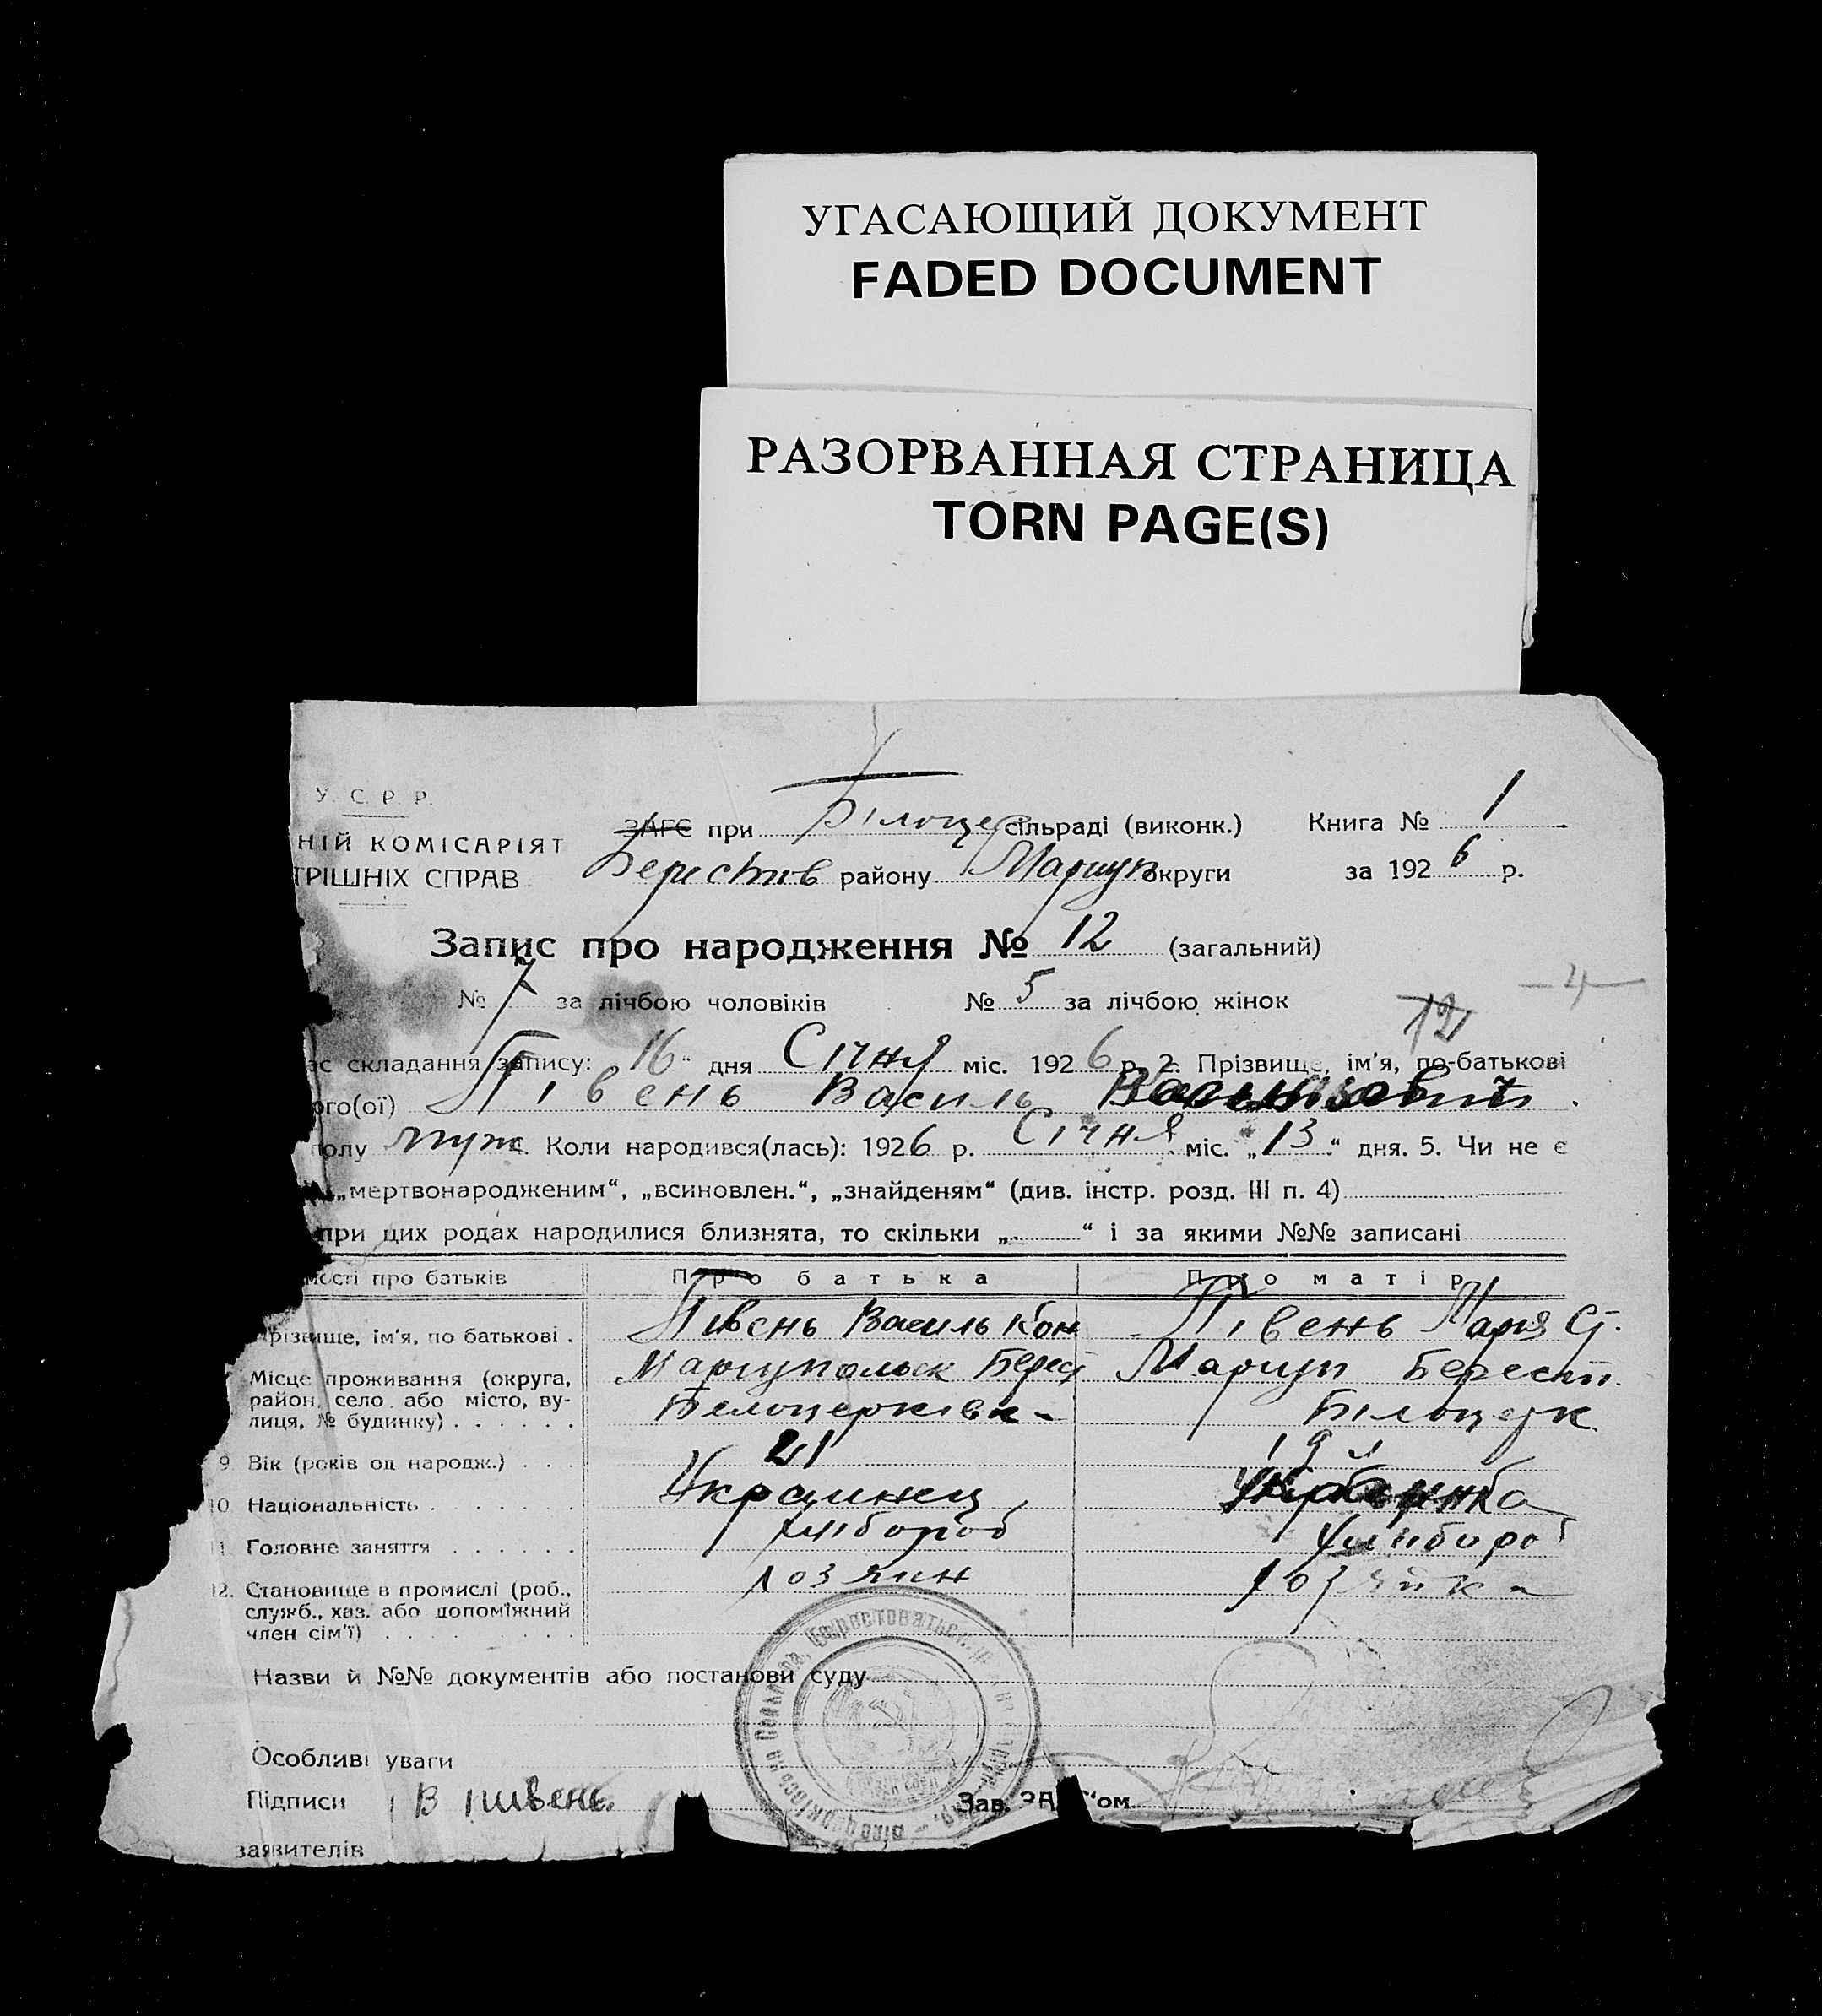 УГАСАЮЩИЙ ДОКУМЕНТ
FADED DOCUMENT
РАЗОРВАННАЯ СТРАНИЦА
TORN PAGE(S)
У. С. Р. Р.
НІЙ КОМІСАРІЯТ
ТРІШНІХ СПРАВ
ЗАГС при Білоце сільраді (виконк.) Книга № 1
Берестів району Маріуп округи за 1926 р.
Запис про народження № 12 (загальний)
№ 7 за лічбою чоловіків № 5 за лічбою жінок
12
4
ас складання запису: 16 " дня Січня міс. 1926 р. 2. Прізвище, ім'я, по-батькові
ого(ої) Півень Василь Васильович
полу муж. Коли народився(лась): 1926 р. Січня міс. „13“ дня. 5. Чи не є
„мертвонародженим“, „всиновлен.“, „знайденям“ (див. інстр. розд. III п. 4)
при цих родах народилися близнята, то скільки „ “ і за якими №№ записані
мості про батьків Про батька Про матір
різвище, ім'я, по батькові . Півень Василь Кон Півень Марія
Місце проживання (округа, Мариупольск Берес Мариуп Берест.
район, село або місто, ву-
лиця, № будинку) . . . . . . Белоцерківк Білоцерк
9. Вік (років од народж.) . . . 21 19
10. Національність . . . . . . . Украинец
11. Головне заняття . . . . . . хлібороб хлібороб
12. Становище в промислі (роб., хозяин хозяйка
служб., хаз. або допоміжний
член сім'ї) . . . . . . . . .
Назви й №№ документів або постанови суду
Особливі уваги
Підписи В Пивень Зав. ЗАГС'ом
заявителів